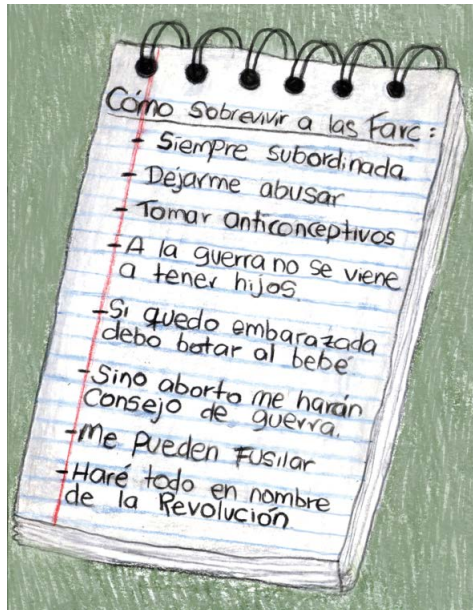 Cómo sobrevivir a las Farc:
- Siempre subordinada
- Dejarme abusar
- Tomar anticonceptivos
- A la guerra no se viene
a tener hijos.
- Si quedo embarazada
debo botar al bebé
- Sino aborto me harán
Consejo de guerra.
- Me pueden Fusilar
- Haré todo en nombre
de la Revolución